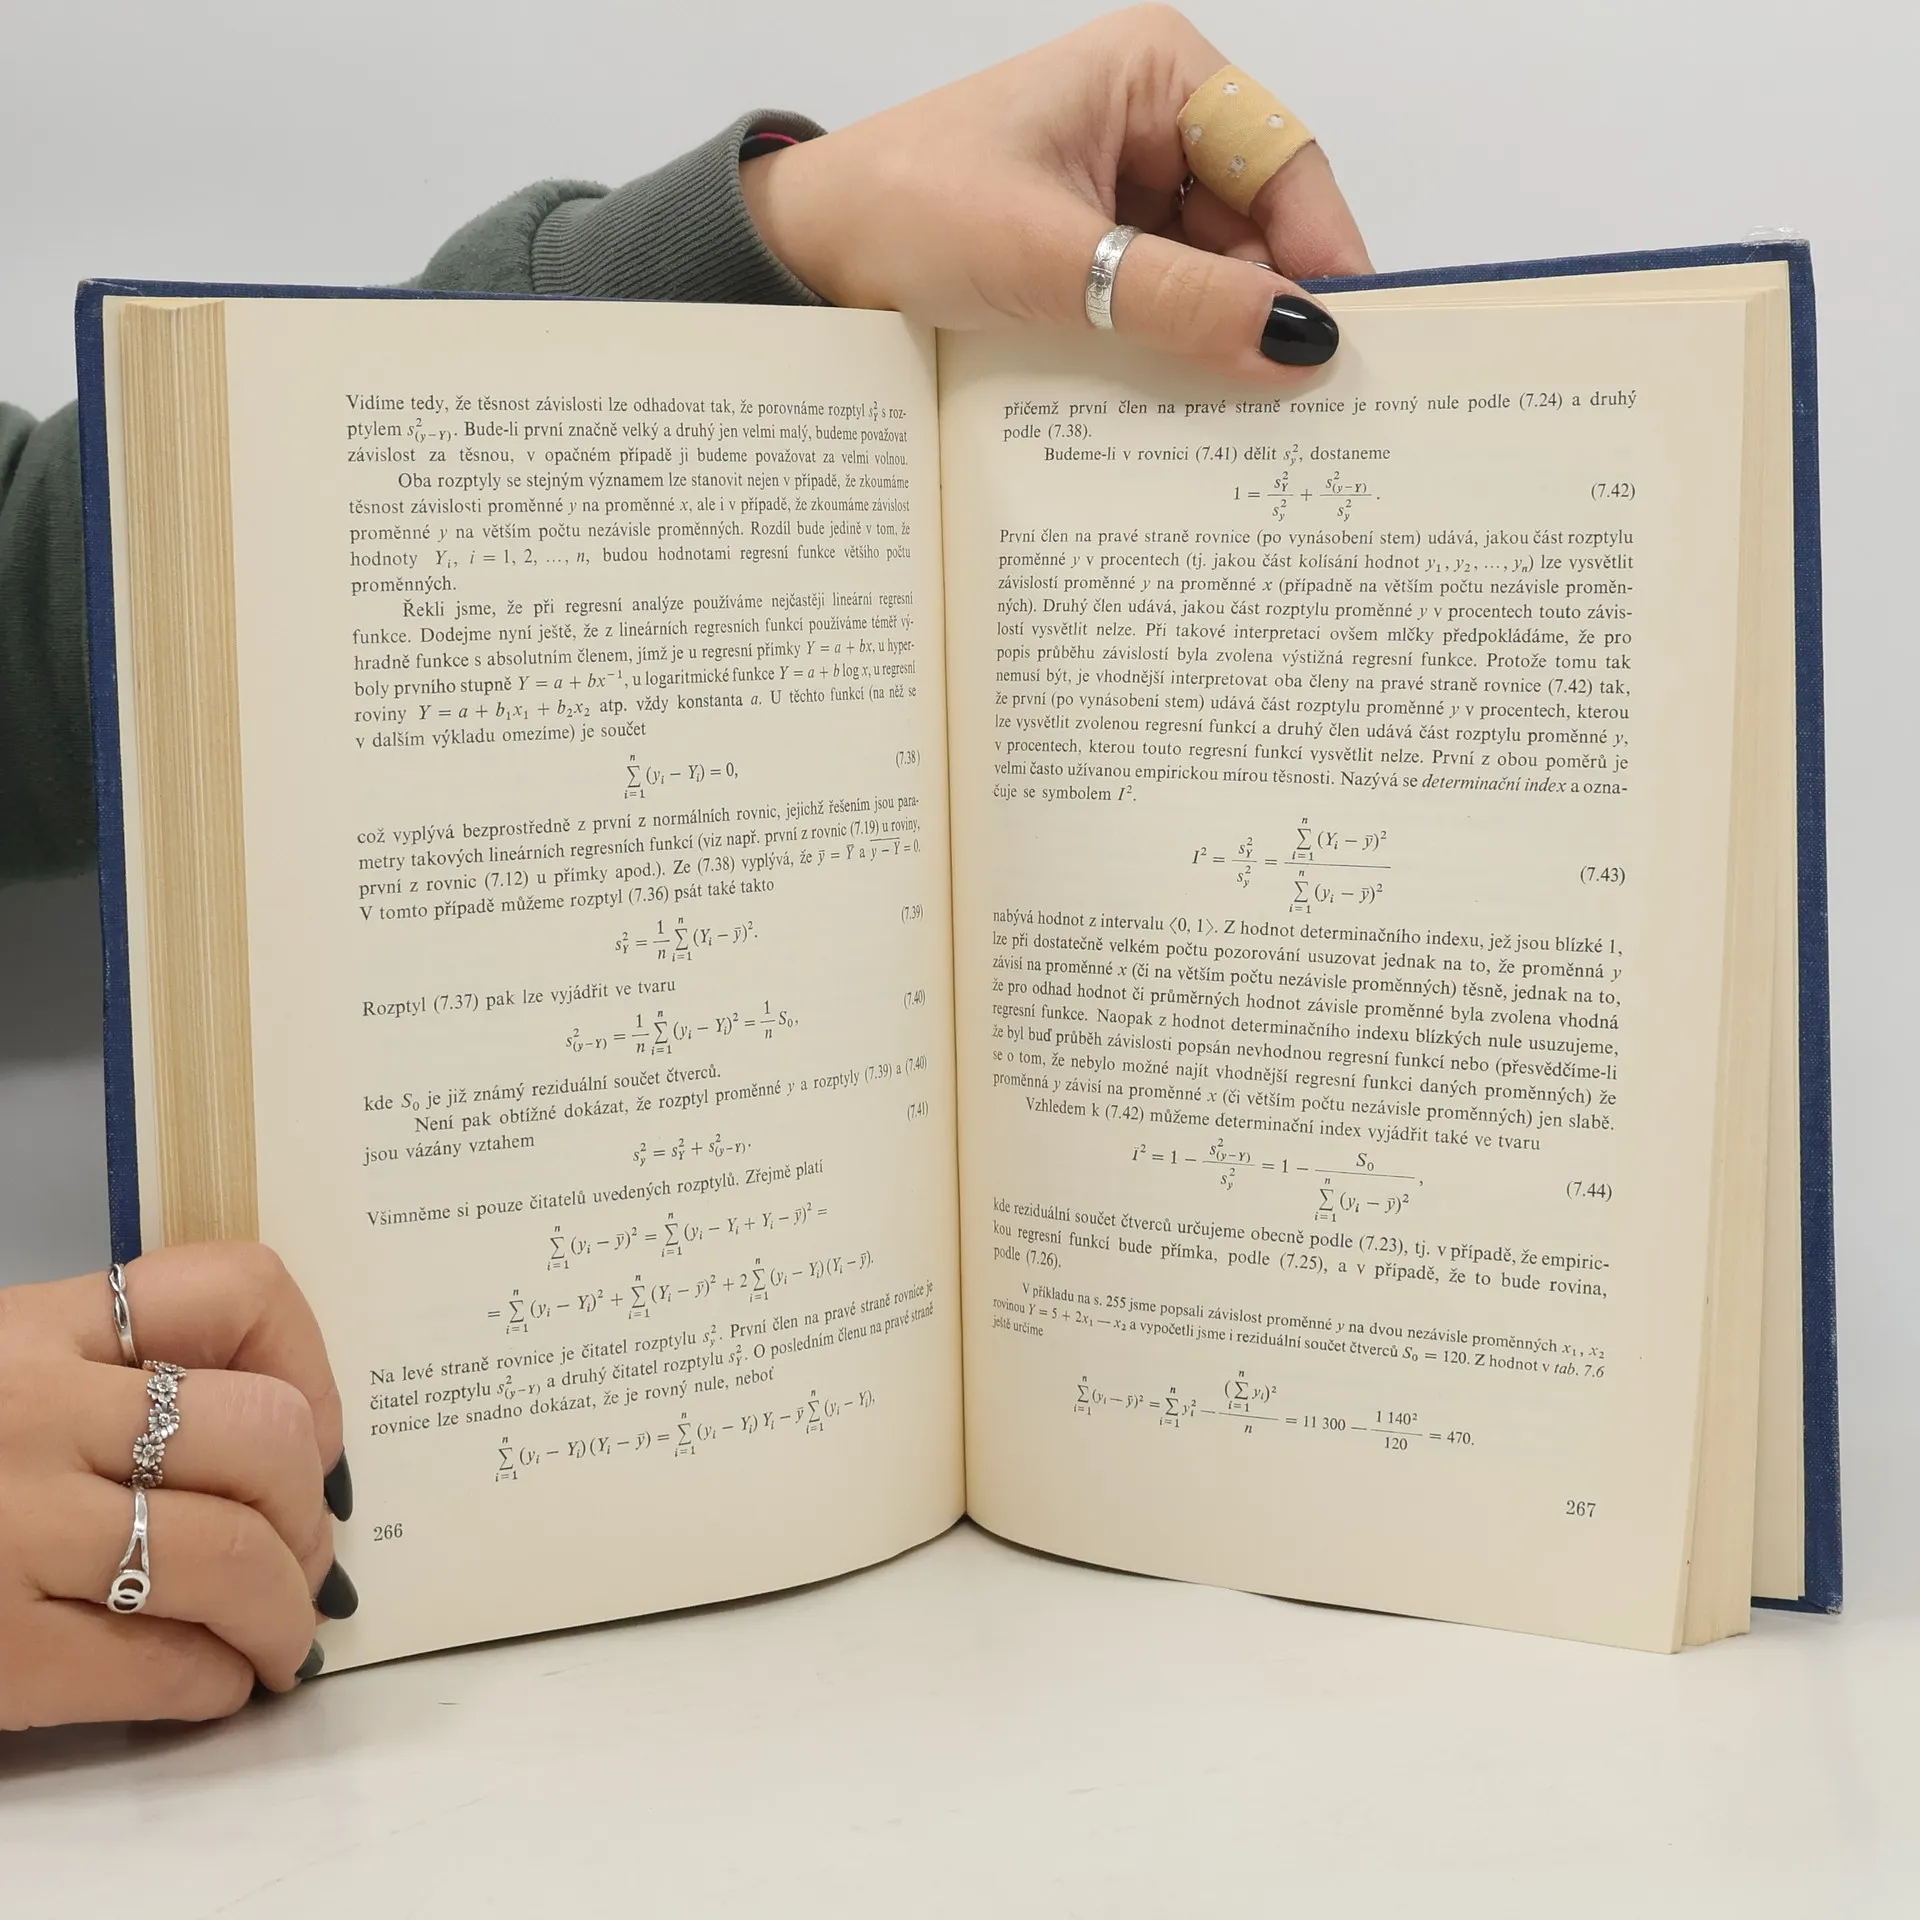 Vidíme tedy, že těsnost závislosti lze odhadovat tak, že porovnáme rozptyl s²_Y s roz-
ptylem s²_(y−Y). Bude-li první značně velký a druhý jen velmi malý, budeme považovat
závislost za těsnou, v opačném případě ji budeme považovat za velmi volnou.
Oba rozptyly se stejným významem lze stanovit nejen v případě, že zkoumáme
těsnost závislosti proměnné y na proměnné x, ale i v případě, že zkoumáme závislost
proměnné y na větším počtu nezávisle proměnných. Rozdíl bude jedině v tom, že
hodnoty Y_i, i = 1, 2, ..., n, budou hodnotami regresní funkce většího počtu
proměnných.
Řekli jsme, že při regresní analýze používáme nejčastěji lineární regresní
funkce. Dodejme nyní ještě, že z lineárních regresních funkcí používáme téměř vý-
hradně funkce s absolutním členem, jímž je u regresní přímky Y = a + bx, u hyper-
boly prvního stupně Y = a + bx⁻¹, u logaritmické funkce Y = a + b log x, u regresní
roviny Y = a + b₁x₁ + b₂x₂ atp. vždy konstanta a. U těchto funkcí (na něž se
v dalším výkladu omezíme) je součet
∑_{i=1}^{n} (y_i − Y_i) = 0, (7.38)
což vyplývá bezprostředně z první z normálních rovnic, jejichž řešením jsou para-
metry takových lineárních regresních funkcí (viz např. první z rovnic (7.19) u roviny,
první z rovnic (7.12) u přímky apod.). Ze (7.38) vyplývá, že ȳ = Ȳ a \overline{y − Y} = 0.
V tomto případě můžeme rozptyl (7.36) psát také takto
s²_Y = 1/n ∑_{i=1}^{n} (Y_i − ȳ)². (7.39)
Rozptyl (7.37) pak lze vyjádřit ve tvaru
s²_(y−Y) = 1/n ∑_{i=1}^{n} (y_i − Y_i)² = 1/n S₀, (7.40)
kde S₀ je již známý reziduální součet čtverců.
Není pak obtížné dokázat, že rozptyl proměnné y a rozptyly (7.39) a (7.40)
jsou vázány vztahem
s²_y = s²_Y + s²_(y−Y). (7.41)
Všimněme si pouze čitatelů uvedených rozptylů. Zřejmě platí
∑_{i=1}^{n} (y_i − ȳ)² = ∑_{i=1}^{n} (y_i − Y_i + Y_i − ȳ)² =
= ∑_{i=1}^{n} (y_i − Y_i)² + ∑_{i=1}^{n} (Y_i − ȳ)² + 2 ∑_{i=1}^{n} (y_i − Y_i)(Y_i − ȳ).
Na levé straně rovnice je čitatel rozptylu s²_y. První člen na pravé straně rovnice je
čitatel rozptylu s²_(y−Y) a druhý čitatel rozptylu s²_Y. O posledním členu na pravé straně
rovnice lze snadno dokázat, že je rovný nule, neboť
∑_{i=1}^{n} (y_i − Y_i)(Y_i − ȳ) = ∑_{i=1}^{n} (y_i − Y_i) Y_i − ȳ ∑_{i=1}^{n} (y_i − Y_i),
266
přičemž první člen na pravé straně rovnice je rovný nule podle (7.24) a druhý
podle (7.38).
Budeme-li v rovnici (7.41) dělit s²_y, dostaneme
1 = s²_Y / s²_y + s²_(y−Y) / s²_y. (7.42)
První člen na pravé straně rovnice (po vynásobení stem) udává, jakou část rozptylu
proměnné y v procentech (tj. jakou část kolísání hodnot y₁, y₂, ..., y_n) lze vysvětlit
závislostí proměnné y na proměnné x (případně na větším počtu nezávisle proměn-
ných). Druhý člen udává, jakou část rozptylu proměnné y v procentech touto závis-
lostí vysvětlit nelze. Při takové interpretaci ovšem mlčky předpokládáme, že pro
popis průběhu závislostí byla zvolena výstižná regresní funkce. Protože tomu tak
nemusí být, je vhodnější interpretovat oba členy na pravé straně rovnice (7.42) tak,
že první (po vynásobení stem) udává část rozptylu proměnné y v procentech, kterou
lze vysvětlit zvolenou regresní funkcí a druhý člen udává část rozptylu proměnné y,
v procentech, kterou touto regresní funkcí vysvětlit nelze. První z obou poměrů je
velmi často užívanou empirickou mírou těsnosti. Nazývá se determinační index a ozna-
čuje se symbolem I².
I² = s²_Y / s²_y = ∑_{i=1}^{n} (Y_i − ȳ)² / ∑_{i=1}^{n} (y_i − ȳ)² (7.43)
nabývá hodnot z intervalu ⟨0, 1⟩. Z hodnot determinačního indexu, jež jsou blízké 1,
lze při dostatečně velkém počtu pozorování usuzovat jednak na to, že proměnná y
závisí na proměnné x (či na větším počtu nezávisle proměnných) těsně, jednak na to,
že pro odhad hodnot či průměrných hodnot závisle proměnné byla zvolena vhodná
regresní funkce. Naopak z hodnot determinačního indexu blízkých nule usuzujeme,
že byl buď průběh závislosti popsán nevhodnou regresní funkcí nebo (přesvědčíme-li
se o tom, že nebylo možné najít vhodnější regresní funkci daných proměnných) že
proměnná y závisí na proměnné x (či větším počtu nezávisle proměnných) jen slabě.
Vzhledem k (7.42) můžeme determinační index vyjádřit také ve tvaru
I² = 1 − s²_(y−Y) / s²_y = 1 − S₀ / ∑_{i=1}^{n} (y_i − ȳ)², (7.44)
kde reziduální součet čtverců určujeme obecně podle (7.23), tj. v případě, že empiric-
kou regresní funkcí bude přímka, podle (7.25), a v případě, že to bude rovina,
podle (7.26).
V příkladu na s. 255 jsme popsali závislost proměnné y na dvou nezávisle proměnných x₁, x₂
rovinou Y = 5 + 2x₁ — x₂ a vypočetli jsme i reziduální součet čtverců S₀ = 120. Z hodnot v tab. 7.6
ještě určíme
∑_{i=1}^{n} (y_i − ȳ)² = ∑_{i=1}^{n} y_i² − (∑_{i=1}^{n} y_i)² / n = 11 300 − 1 140² / 120 = 470.
267